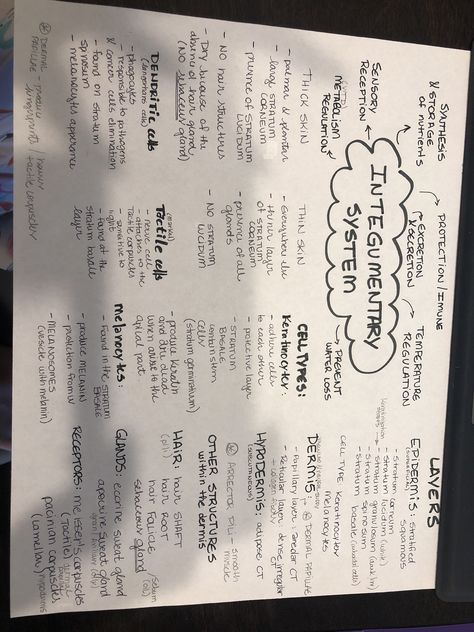 INTEGUMENTARY
SYSTEM
SYNTHESIS
& STORAGE
of nutrients
PROTECTION / IMUNE
EXCRETION
/ SECRETION
TEMPERATURE
REGULATION
PREVENT
WATER LOSS
SENSORY
RECEPTION
METABOLISM
REGULATION
LAYERS
EPIDERMIS: stratified
squamous
- stratum corneum
- stratum lucidum (thick)
- stratum granulosum
- stratum spinosum
- stratum basale
CELL TYPE: keratinocytes
melanocytes
DERMIS: DERMAL PAPILLAE
- Papillary layer: areolar CT
- Reticular layer: dense irregular CT
+ collagen
HYPODERMIS: adipose CT
(SUBCUTANEOUS)
ARRECTOR PILI: smooth
muscle
OTHER STRUCTURES
within the dermis
HAIR: hair SHAFT
(pili) hair ROOT
hair FOLLICLE
sebaceous gland
GLANDS: eccrine sweat gland
apocrine sweat gland
RECEPTORS: meissner's corpuscles
(Tactile)
pacinian corpuscles
(Lamellar)
THICK SKIN
- palmar & plantar
- large STRATUM
CORNEUM
- presence of STRATUM
LUCIDUM
- NO hair structures
- Dry because of the
absence of hair gland
(NO sebaceous gland)
THIN SKIN
- Everywhere else
- thinner layer
of STRATUM
CORNEUM
- presence of all
glands
- NO STRATUM
LUCIDUM
CELL TYPES:
Keratinocytes:
- adhere cells
to each other
- protective layer
- STRATUM
BASALE
contain stem
cells
(stratum germinativum)
- produce keratin
and then dead
when pushed to the
apical part
melanocytes:
- Found in the STRATUM
BASALE
- produce MELANIN
- protection from UV
- MELANOSOMES
(vesicle with melanin)
Tactile cells
(merkel)
- nerve cell
- attaches to the
Tactile corpuscles
- sensitive to
light
- found at the
stratum basale
layer
DENDRITIC cells
(langerhans cells)
- phagocytes
- responsible to pathogens
& cancer cells elimination
- found on stratum
spinosum
- melanocytes appearance
DERMAL
PAPILLAE - produce
fingerprints / house
tactile corpuscles